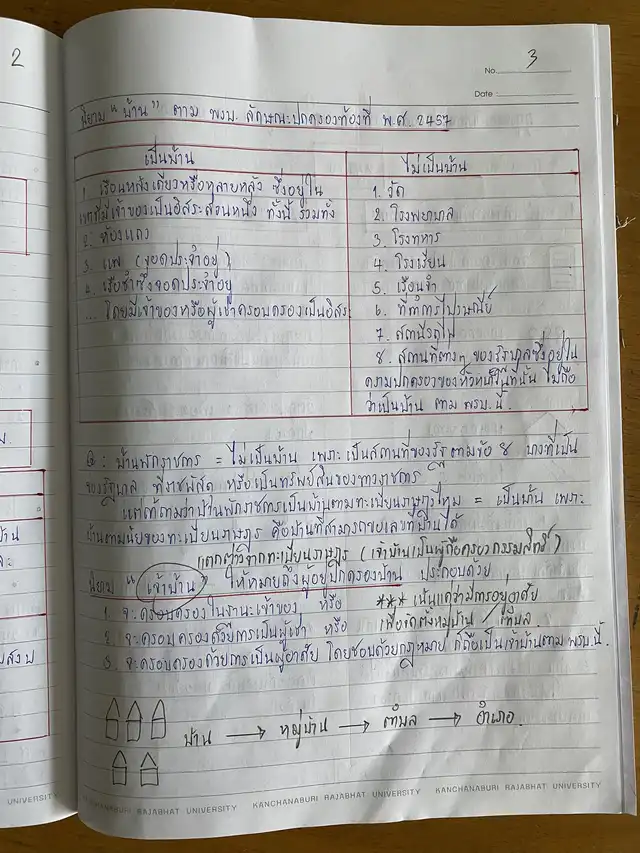 2
No. 3
Date :
นิยาม "บ้าน" ตาม พรบ. ลักษณะปกครองท้องที่ พ.ศ. 2457
เป็นบ้าน
1. เรือนหลังเดียวหรือหลายหลัง ซึ่งอยู่ใน
เขตที่มีเจ้าของเป็นอิสระส่วนหนึ่ง ทั้งนี้ รวมทั้ง
2. ห้องแถว
3. แพ (จอดประจำอยู่)
4. เรือชำซึ่งจอดประจำอยู่
... โดยมีเจ้าของหรือผู้เช่าครอบครองเป็นอิสระ
ไม่เป็นบ้าน
1. วัด
2. โรงพยาบาล
3. โรงทหาร
4. โรงเรียน
5. เรือนจำ
6. ที่ทำการไปรษณีย์
7. สถานีรถไฟ
8. สถานที่ต่างๆ ของรัฐบาลซึ่งอยู่ใน
ความปกครองของหัวหน้าในที่นั้น ไม่ถือ
ว่าเป็นบ้าน ตาม พรบ.นี้.
Q : บ้านพักราชการ = ไม่เป็นบ้าน เพราะ เป็นสถานที่ของรัฐ ตามข้อ 8 บางที่เป็น
ของรัฐบาล ที่ราชพัสดุ หรือเป็นทรัพย์สินของทางราชการ
แต่ถ้าถามว่าบ้านพักราชการเป็นบ้านตามทะเบียนราษฎรไหม = เป็นบ้าน เพราะ
บ้านตามนัยของทะเบียนราษฎร คือบ้านที่สามารถขอเลขที่บ้านได้
แตกต่างจากทะเบียนราษฎร (เจ้าบ้านเป็นผู้ถือครองกรรมสิทธิ์)
นิยาม "เจ้าบ้าน" ให้หมายถึงผู้อยู่ปกครองบ้าน ประกอบด้วย
1. จะครอบครองในฐานะเจ้าของ หรือ *** เน้นแค่ว่ามีการอยู่อาศัย
2. จะครอบครองด้วยการเป็นผู้เช่า หรือ เพื่อจัดตั้งหมู่บ้าน / ตำบล
3. จะครอบครองด้วยการเป็นผู้อาศัย โดยชอบด้วยกฎหมาย ก็ถือเป็นเจ้าบ้านตาม พรบ.นี้.
บ้าน → หมู่บ้าน → ตำบล → อำเภอ.
UNIVERSITY
KANCHANABURI RAJABHAT UNIVERSITY KANCHANABURI RAJABHAT UNIVERSITY KANCHANABURI RAJABHAT UNIVERSITY